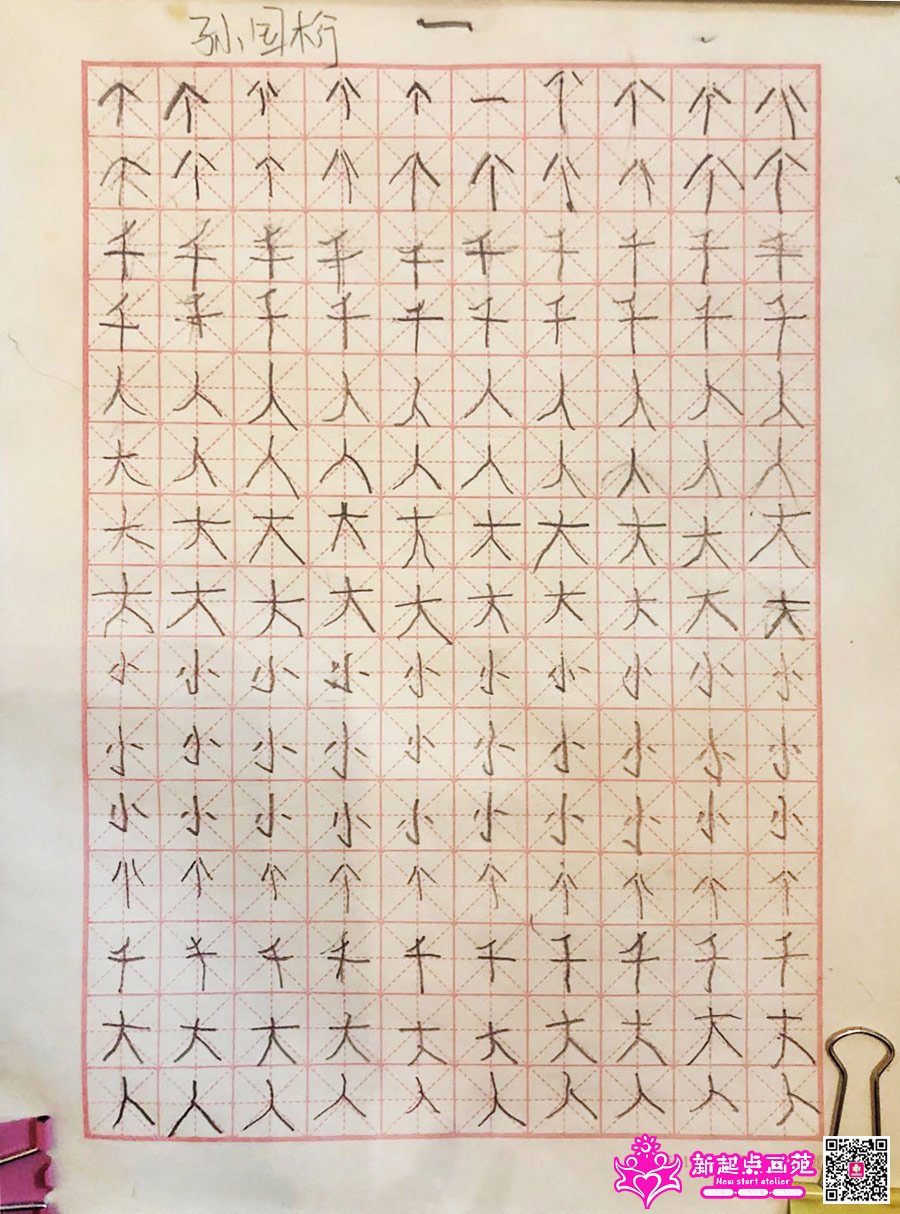 孙国桁 一
个个个个个一个个个个
个个个个个个个个个个
千千千千千千千千千千
千千千千千千千千千千
人人人人人人人人人人
大人人人人人人人人人
大大大大大大大大大大
大大大大大大大大大大
小小小小小小小小小小
小小小小小小小小小小
小小小小小小小小小小
个个个个个个个个个个
千千千千千千千千千千
大大大大大大大大大大
人人人人人人人人人人
新起点画苑
New start atelier